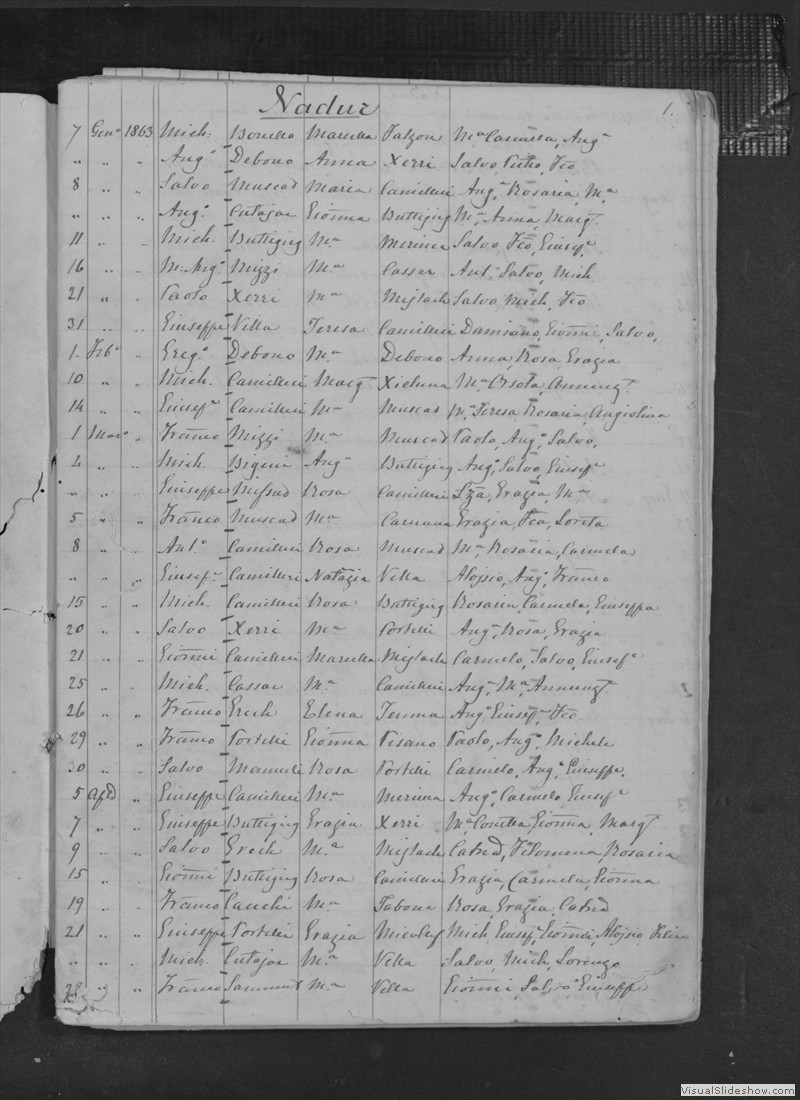 Nadur
1.
7 Gen° 1863 Mich. Bonello Marella Falzon Mª Carmela, Angª
" " " Ang° Debono Anna Xerri Salvo, Pietro, Fco
8 " " Salvo Muscad Maria Camilleri Ang°, Rosaria, Mª
" " " Ang° Cutajar Gionna Buttigieg Mª Anna, Margt
11 " " Mich. Buttigieg Mª Salvo, Fco, Giusefe
16 " " Mizzi Mª Cassar Ant° Salvo, Mich
21 " " Paolo Xerri Mª Salvo Mich, Fco
31 " " Giuseppe Vella Teresa Camilleri Damiano, Gionni, Salvo,
1. Feb° " Greg° Debono Mª Debono Anna, Rosa, Grazia
10 " " Mich. Camilleri Margt Xicluna Mª Orsola, Annunzt
14 " " Giusefe Camilleri Mª Muscad Mª Teresa, Rosaria, Angiolina
1 Mar° " Franco Mizzi Mª Muscad Paolo, Ang°, Salvo,
4 " " Mich Angª Buttigieg Ang° Salvo, Giusefe
" " " Giuseppe Mifsud Rosa Camilleri Grazia, Mª
5 " " Franco Muscad Mª Caruana Grazia, Fca, Loreta
8 " " Ant° Camilleri Rosa Muscad Mª Rosaria, Carmela
" " " Giusefe Camilleri Natazia Vella Alojsio, Ang°, Franco
15 " " Mich. Camilleri Rosa Buttigieg Rosaria, Carmela, Giuseppa
20 " " Salvo Xerri Mª Portelli Angª, Rosa, Grazia
21 " " Gionni Camilleri Marella Carmelo, Salvo, Giusefe
25 " " Mich. Cassar Mª Camilleri Angª, Mª Annunzt
26 " " Franco Grech Elena Ang° Giusefe Fco
29 " " Franco Portelli Gionna Pisano Paolo, Ang°, Michele
30 " " Salvo Rosa Portelli Carmelo, Ang°, Giuseppe,
5 Aple " Giuseppe Camilleri Mª Ang°, Carmelo, Giusefe
7 " " Giuseppe Buttigieg Grazia Xerri Mª Gionna, Margt
9 " " Salvo Grech Mª Filomena, Rosaria
15 " " Gionni Buttigieg Rosa Camilleri Grazia, Carmela, Gionna
19 " " Franco Mª Tabone Rosa, Grazia,
21 " " Giuseppe Portelli Grazia Mich, Giusefe, Gionni, Alojsio
" " " Mich. Cutajar Mª Vella Salvo, Mich, Lorenzo
28 " " Franco Sammut Mª Vella Gionni, Salvo Giuseppe
VisualSlideshow.com